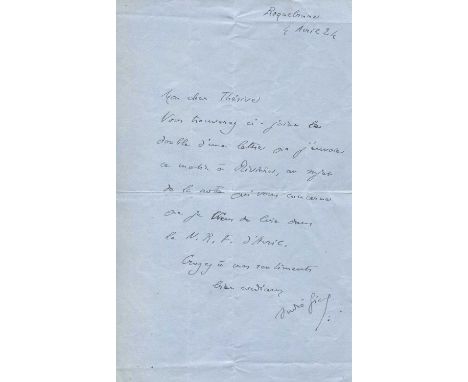 Roquebrune
4 Avril 24
Mon cher Thérive
Vous trouverez ci-joint le
double d'une lettre que j'envoie
ce matin à Rivière, au sujet
de la note qui vous concerne
que je viens de lire dans
la N. R. F. d'Avril.
Croyez à mes sentiments
bien cordiaux
André Gide